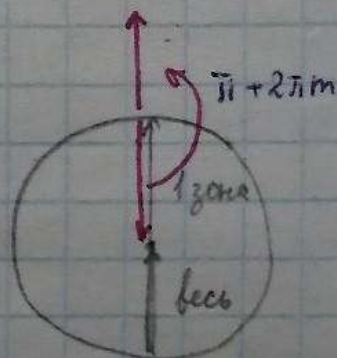 π + 2πm
1 зона
весь